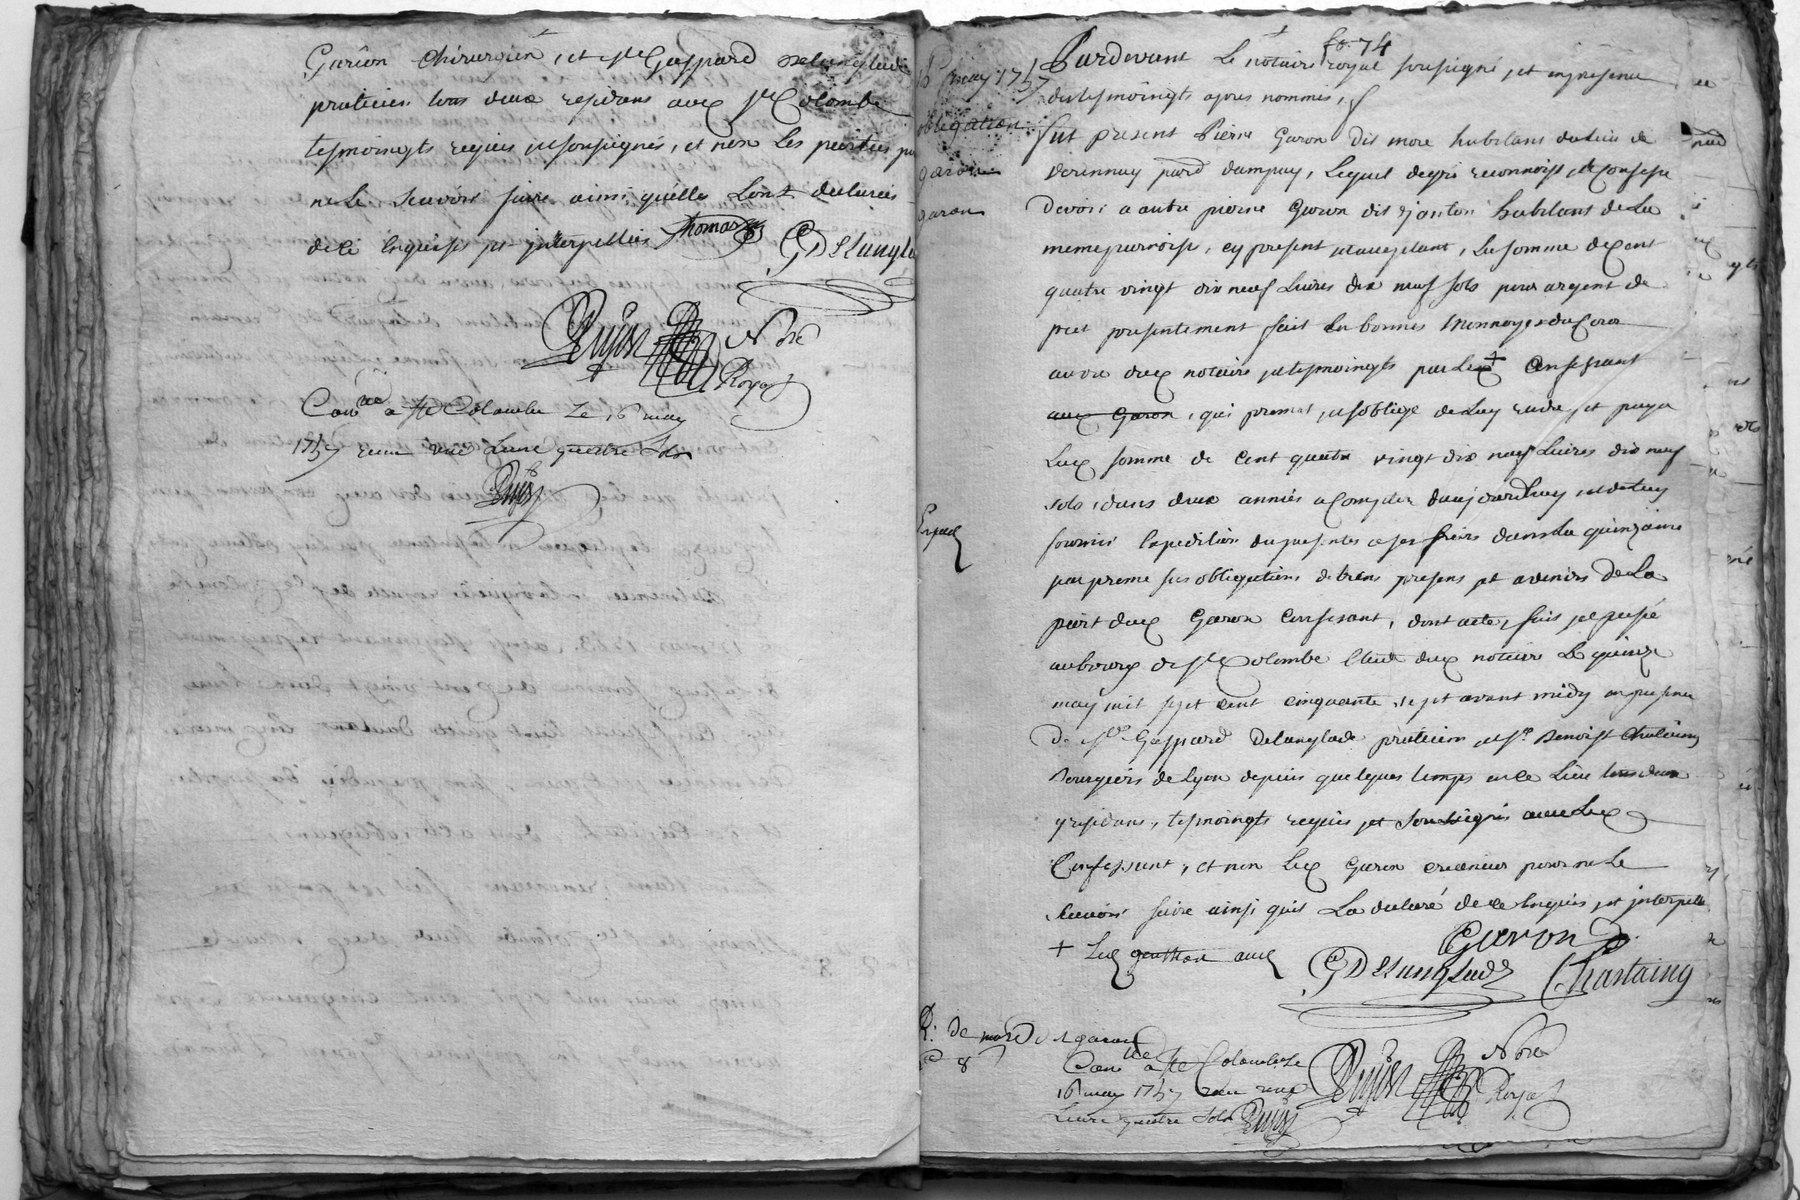 Garon chirurgien, et sr Gaspard Delanglade
praticien tous deux residans aux ste Colombe
tesmoingts requis et soussignés, et non les parties p
ne le scavoir faire ainsi quelles lont declarées
de ce enquises et interpellées Thomas GDelangla
Dujon Nore
Royal
Con^né a ste Colombe le 16 may
1757 receu une livre quattre sols
Dujon
fo. 74
may 1757
obligation
garon
garon
Pardevant le notaire royal soussigné, et en presence
des tesmoingts apres nommés,
fut present Pierre Garon dit more habitans du lieu de
Verennay parr dampuy, lequel de gré reconnoist et confesse
devoir a autre pierre Garon dit janton habitans de la
meme parroisse, cy present et acceptant, la somme de cent
quatre vingt dix neuf livres dix neuf sols pour argent de
pret presentement fait en bonnes monnoyes du cours
au vu dud notaire et tesmoingts par led + confessant
aud Garon, qui promet, et soblige de luy rendre, et payer
lad somme de cent quatre vingt dix neuf livres dix neuf
sols, dans deux années a compter daujourdhuy, et de luy
fournir expedition du presentes a ses frais dans la quinzaine
par preme ses obligations de biens presens et avenirs de la
part dud Garon confessant, dont acte, fait et passé
au bourg de ste Colombe etude dud notaire le quinze
may mil sept cent cinquante sept avant midy en presence
de sr Gaspard Delanglade praticien et sr Benoist Chataing
Bourgeois de Lyon depuis quelques temps en ce lieu tous deux
y residans, tesmoingts requis et soussignés avec led
Confessant, et non led Garon creancier pour ne le
scavoir faire ainsi quil la declaré de ce enquis et interpellé
+ led garon aud
Expedé
Garon
GDelanglade Chastaing
R. de mord et garon
Con^né a ste Colombe le
16 may 1757 receu une
Livre quattre sols Dujon
Dujon Nore
Royal